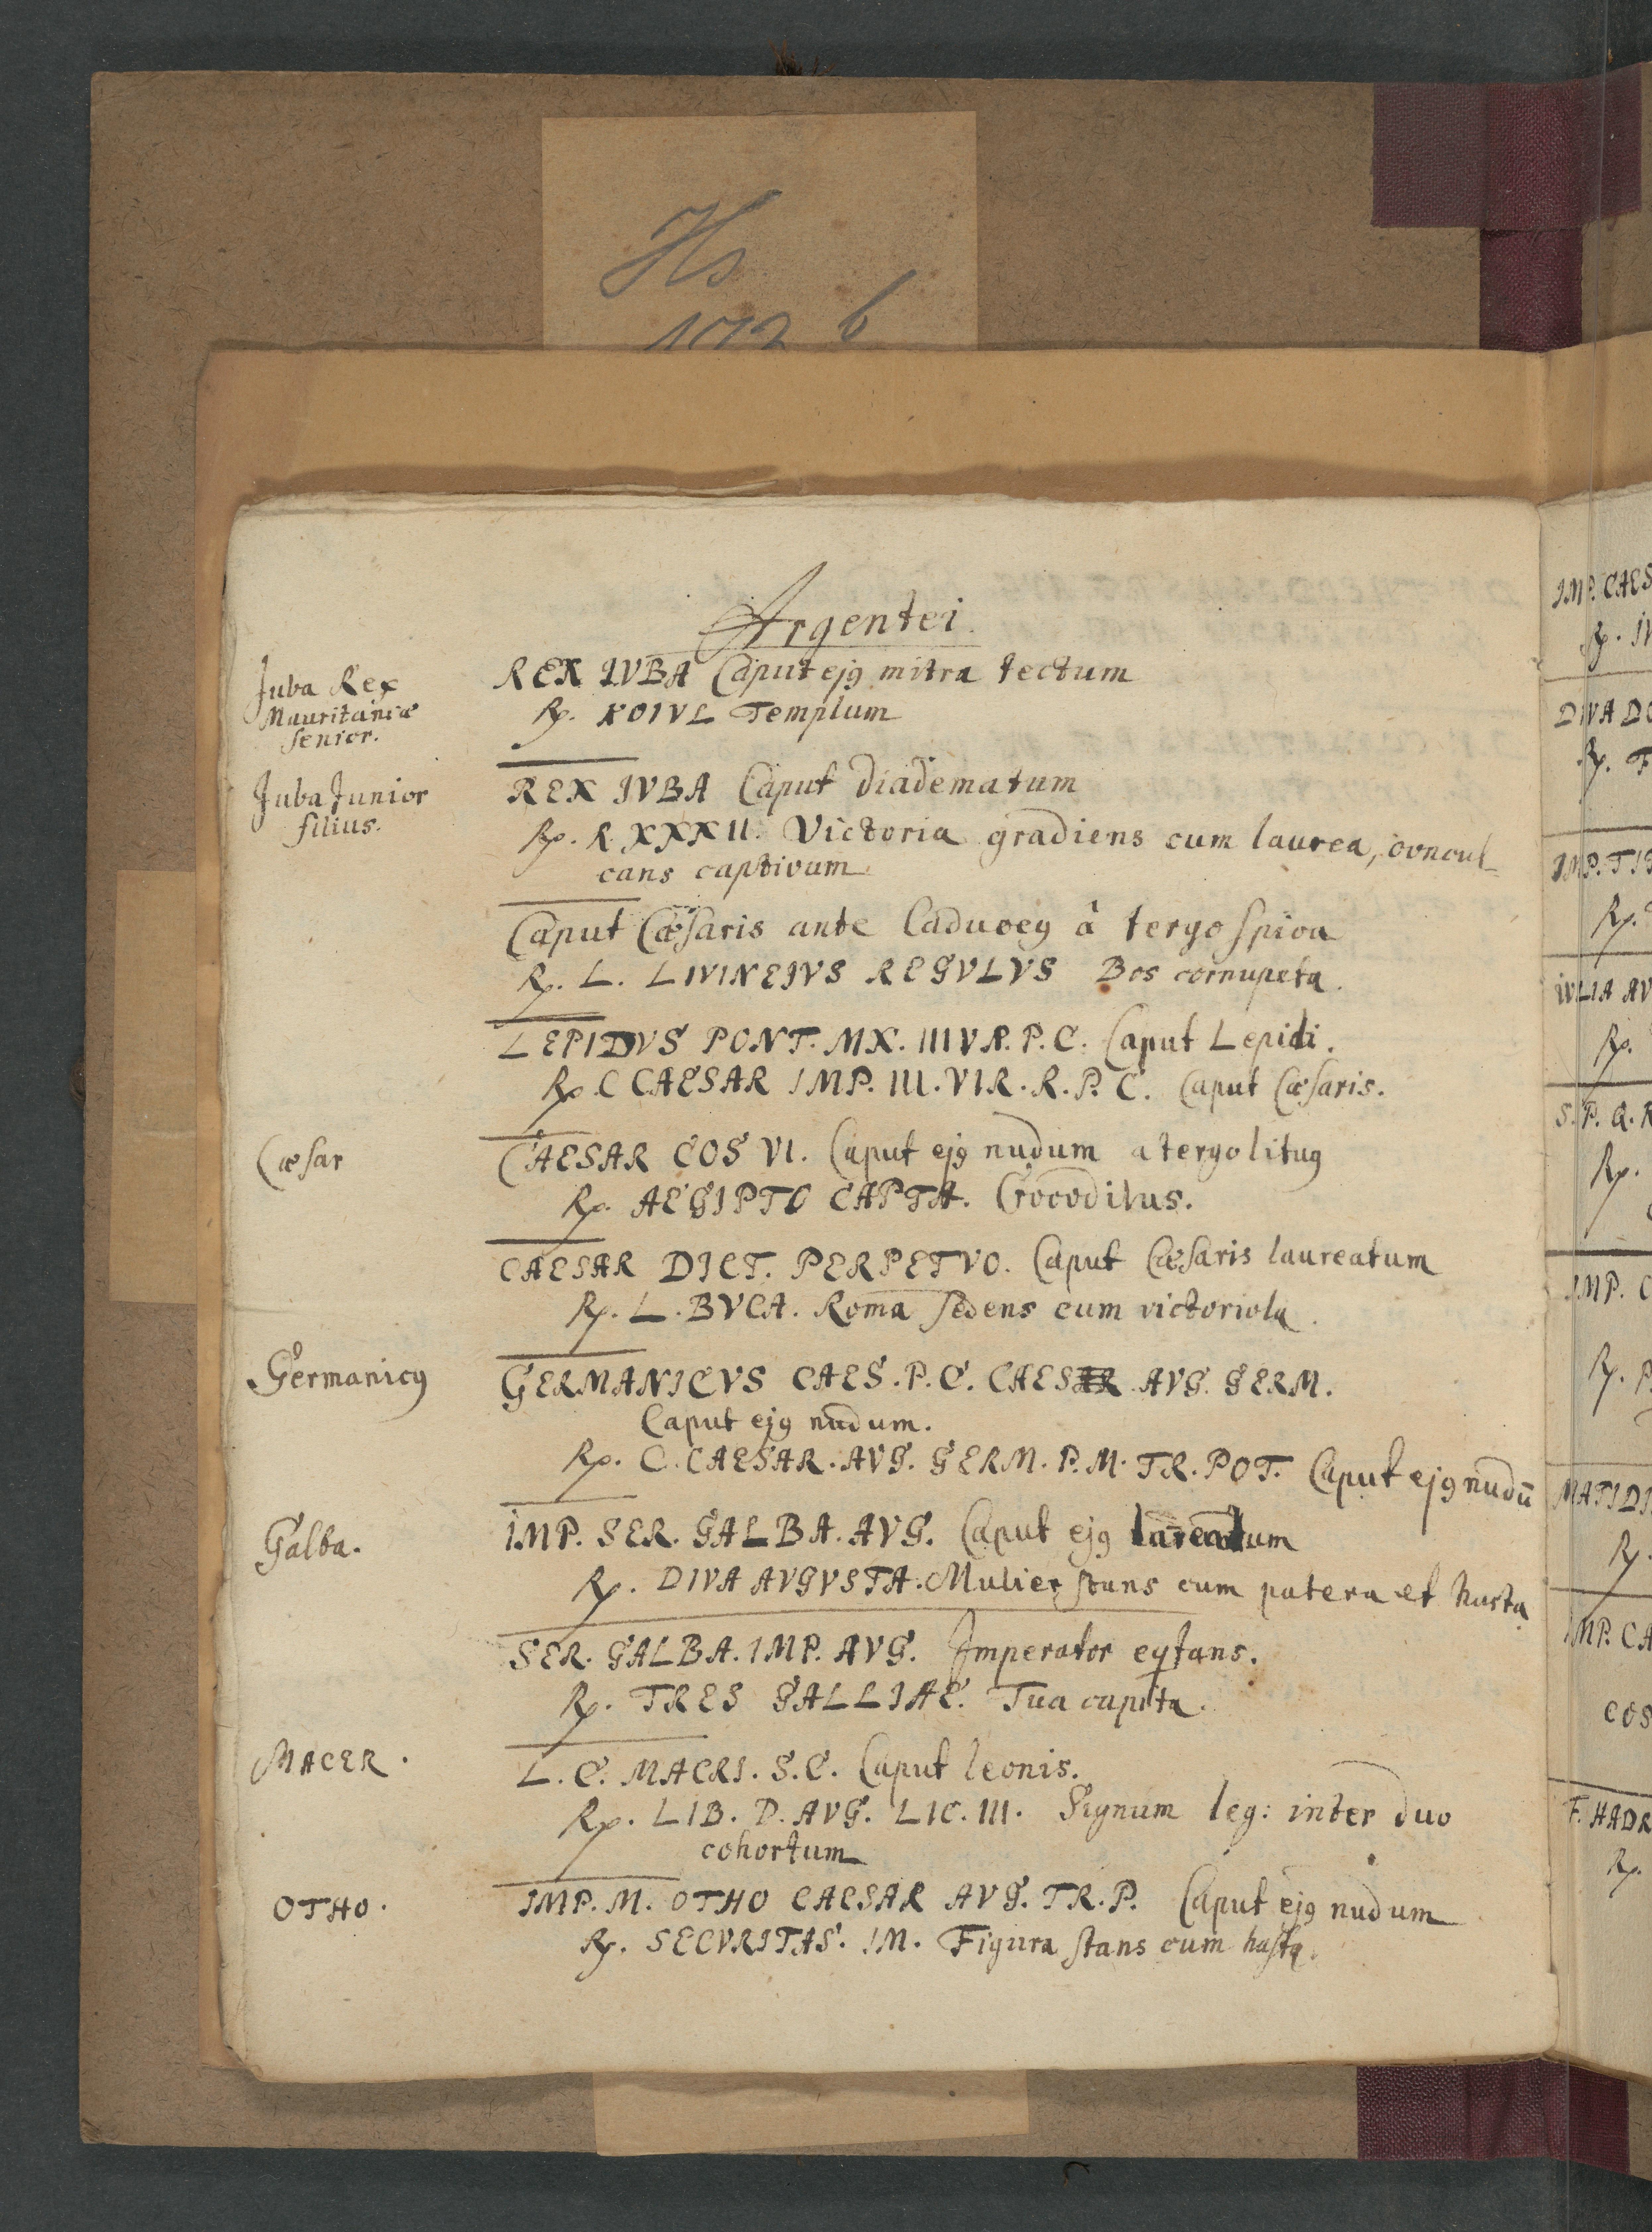 Hs
172 b
Argentei
Juba Rex
Mauritaniæ
senior.
REX IVBA Caput ejꝯ mitra tectum
Rx. KOIVL Templum
Juba Junior
filius.
REX IVBA Caput diadematum
Rx. R. XXXII. Victoria gradiens cum laurea, concul-
cans captivum
Caput Cæsaris ante Caduceꝯ à tergo spica
Rx. L. LIVINEIVS REGVLVS Bos cornupeta.
LEPIDVS PONT. MX. IIIVR. P. C. Caput Lepidi.
Rx C CAESAR IMP. III. VIR. R. P. C. Caput Cæsaris.
Cæsar
CAESAR COS VI. Caput ejꝯ nudum a tergo lituꝯ
Rx. AEGIPTO CAPTA. Crocodilus.
CAESAR DICT. PERPETVO. Caput Cæsaris laureatum
Rx. L. BVCA. Roma sedens cum victoriola.
Germanicꝯ
GERMANICVS CAES. P. C. CAESAR AVG. GERM.
Caput ejꝯ nudum.
Rx. C. CAESAR. AVG. GERM. P. M. TR. POT. Caput ejꝯ nudū
Galba.
IMP. SER. GALBA. AVG. Caput ejꝯ laureatum
Rx. DIVA AVGVSTA. Mulier stans cum patera et hasta
SER. GALBA. IMP. AVG. Imperator eqtans.
Rx. TRES GALLIAE. Tria capita.
MACER.
L. C. MACRI. S. C. Caput leonis.
Rx. LIB. D. AVG. LIC. III. Signum leg: inter duo
cohortum
OTHO.
IMP. M. OTHO CAESAR AVG. TR. P. Caput ejꝯ nudum
Rx. SECVRITAS. IM. Figura stans cum hasta.
IMP. CAES
Rx. IV
DIVA DO
Rx. F
IMP. TIT
Rx.
IVLIA AV
Rx.
S. P. Q. R
Rx.
IMP. C
Rx. P
MATIDI
Rx.
IMP. CA
COS
F. HADR
Rx.